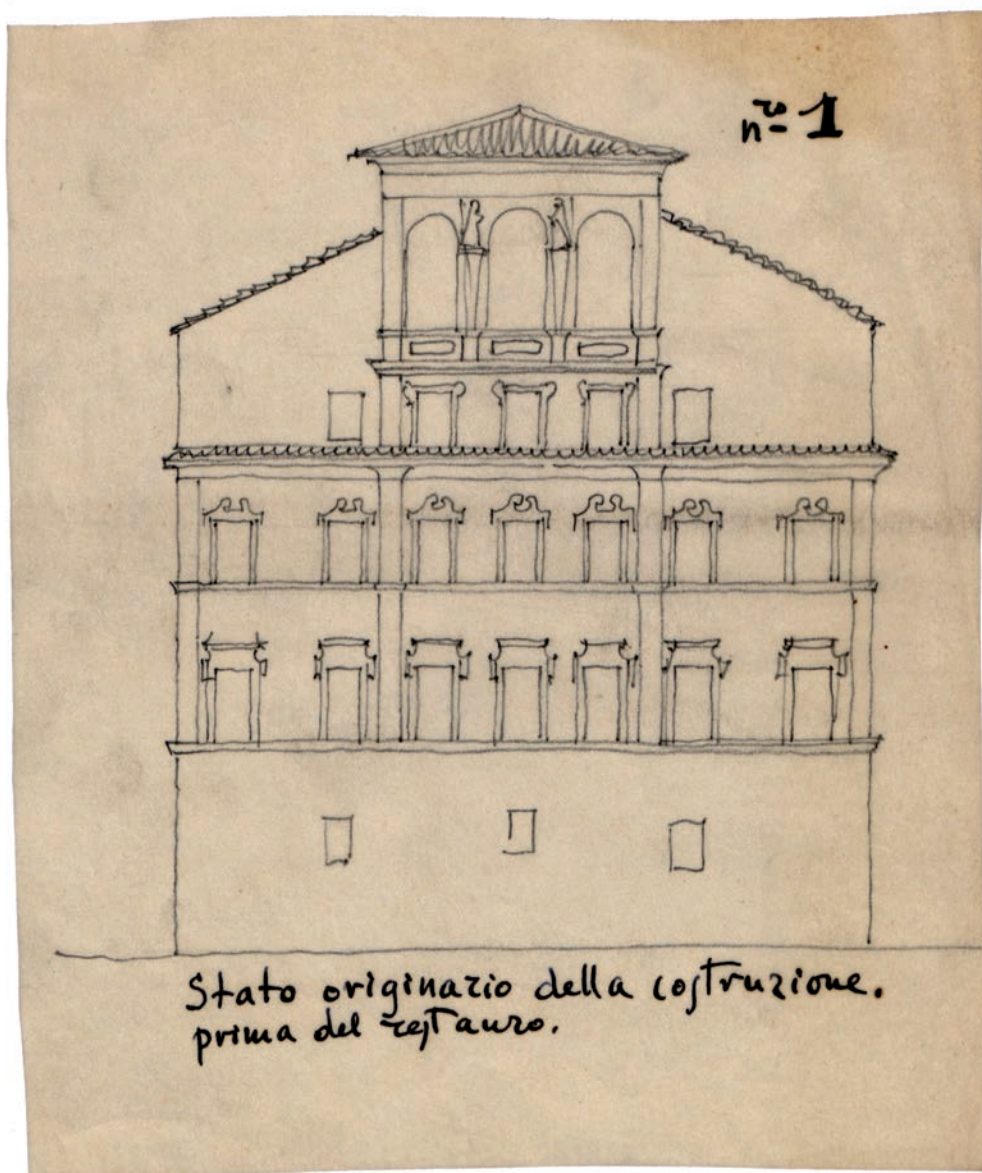 nro 1
Stato originario della costruzione.
prima del restauro.